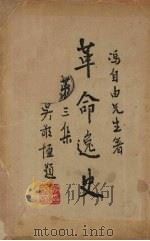 馮自由先生著
革命逸史
第三集
吳敬恆題